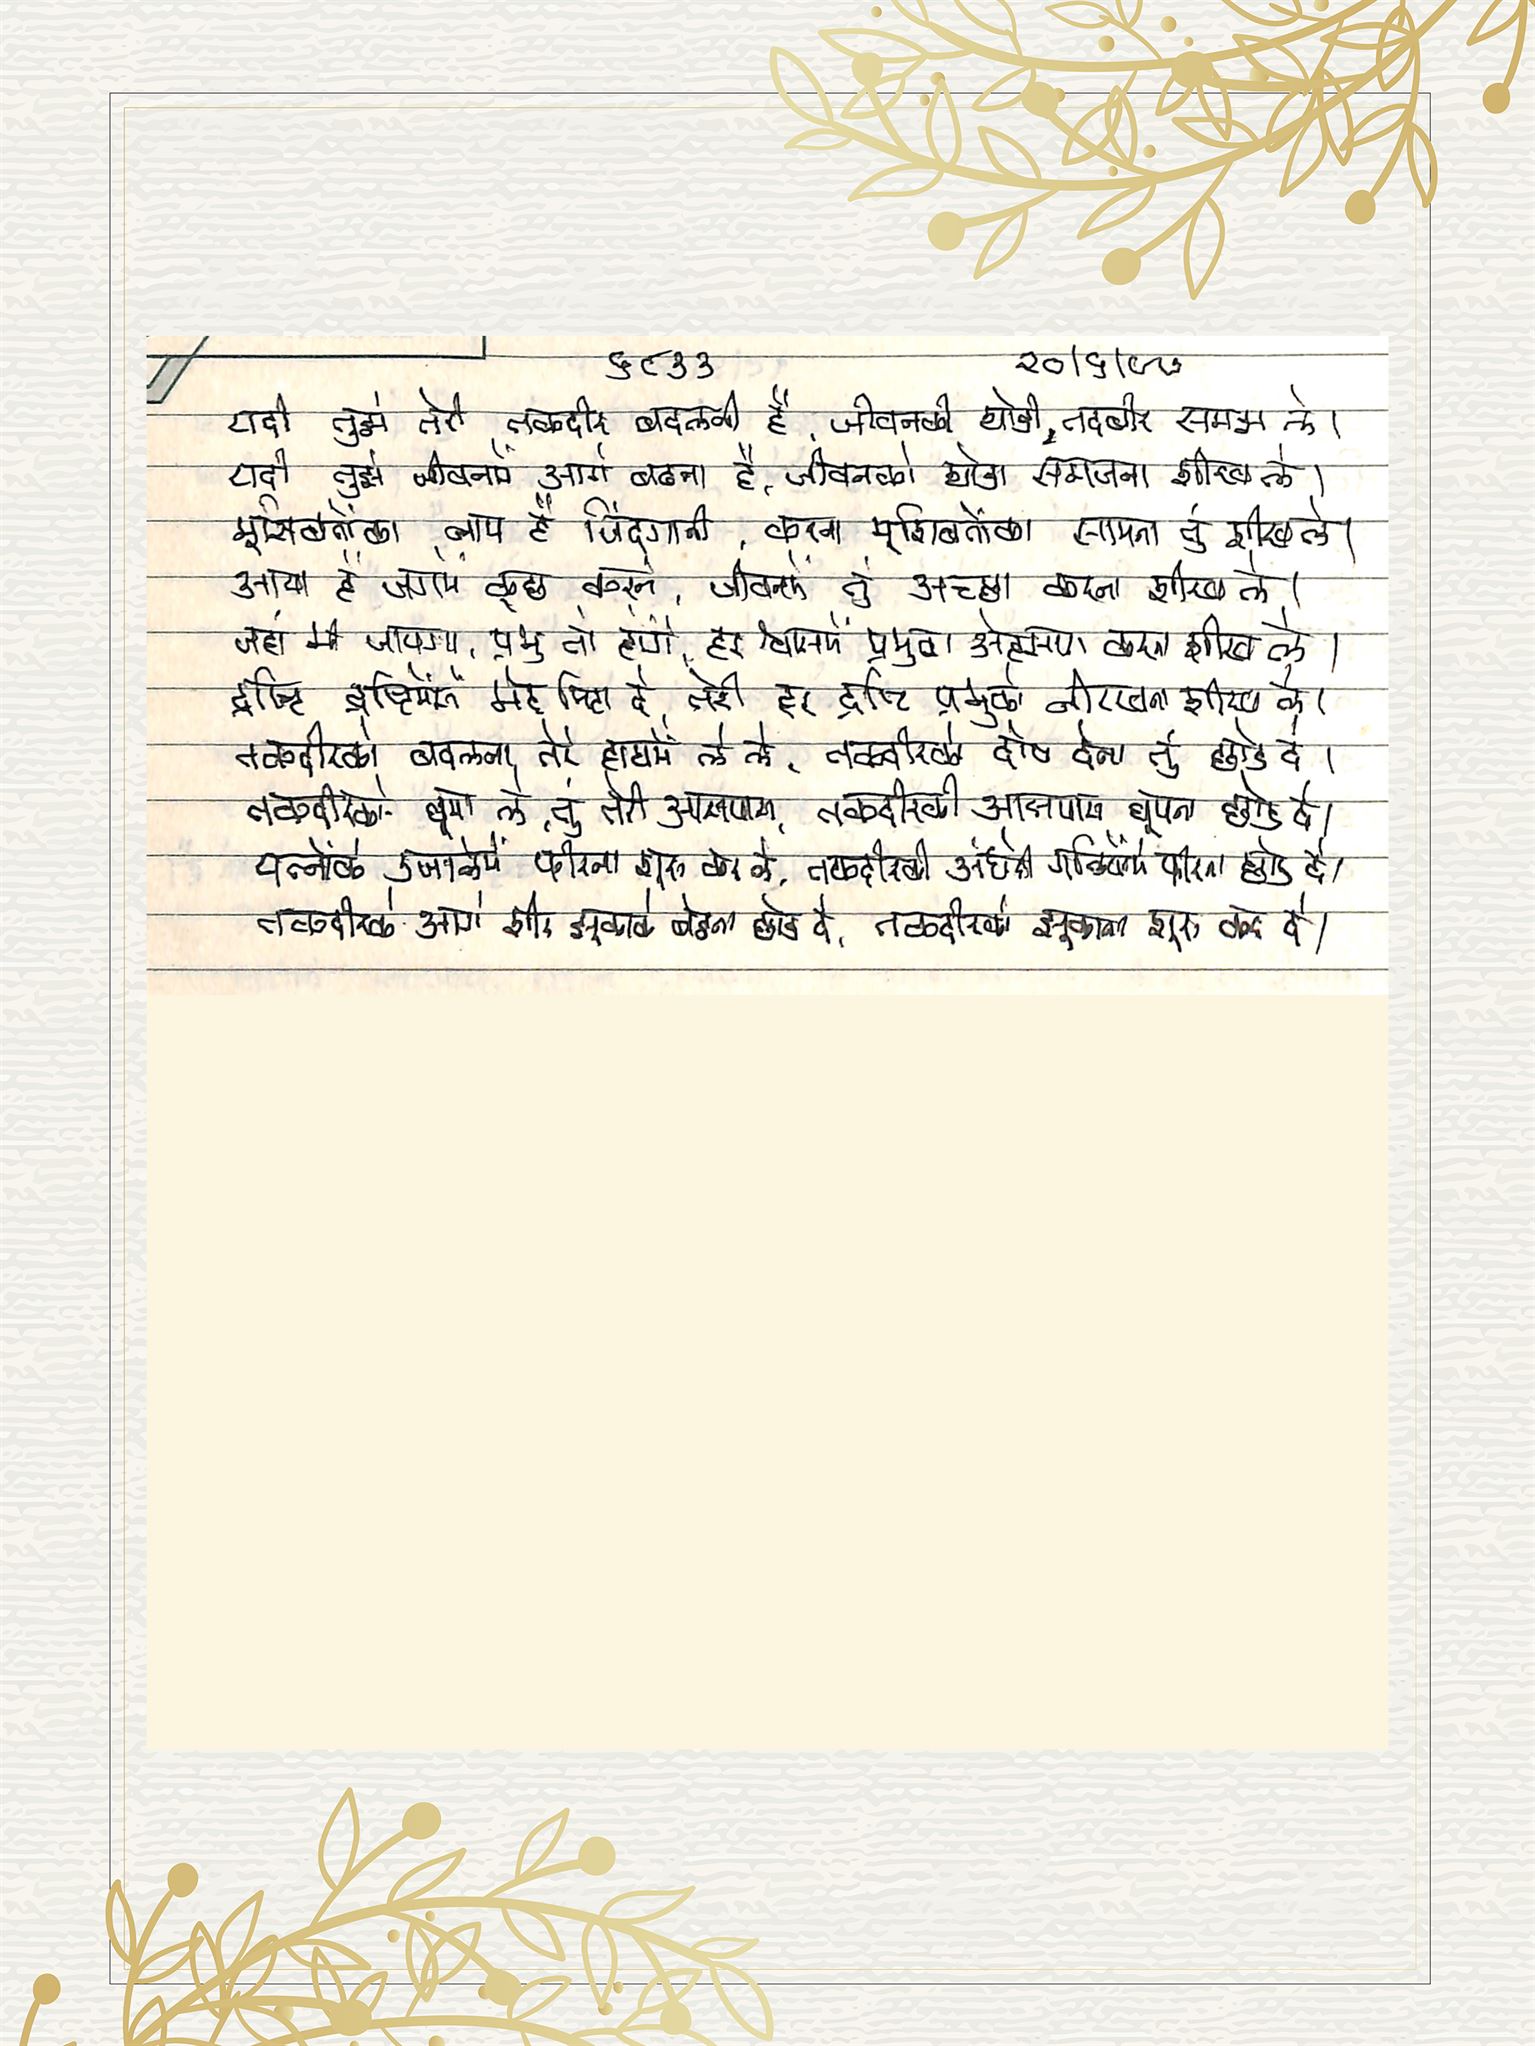 ६९३३ २०/६/९७
यदी तुझे तेरी तकदीर बदलनी है, जीवनकी थोडी, तदबीर समझ ले।
यदी तुझे जीवनमें आगे बढना है, जीवनको थोडा समजना शीख ले।
मूसिबतोंका नाम है जिंदगानी, करना मूशिबतोंका सामना तुं शीख ले।
आया है जगमें कूछ करने, जीवनमें तुं अच्छा करना शीख ले।
जहां भी जाएगा, प्रभु तो होंगे, हर श्वासमें प्रभुका अेहसास करना शीख ले।
द्रष्टि द्रष्टिमेंसे भेद मिटा दे, तेरी हर द्रष्टि प्रभुको नीरखना शीख ले।
तकदीरको बदलना, तेरे हाथमें ले ले, तकदीरको दोष देना तुं छोड दे।
तकदीरको घूमा ले, तुं तेरी आसपास, तकदीरकी आसपास घूमना छोड दे।
यत्नोंके उजालेमें फीरना शूरु कर ले, तकदीरकी अंधेरी गलियोंमें फीरना छोड दे।
तकदीरके आगे शीर झूकाके बेठना छोड दे, तकदीरको झूकाना शूरु कर दे।